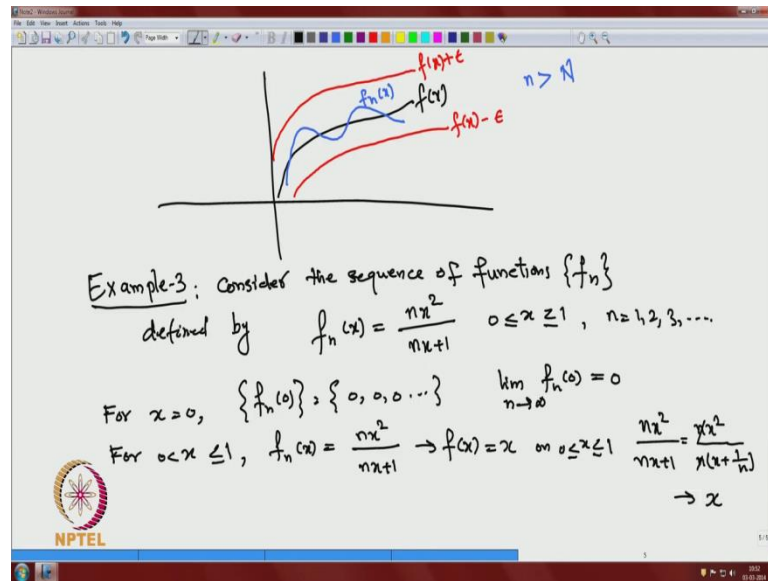 Note2 - Windows Journal
File Edit View Insert Actions Tools Help
Page Width
f(x)+ε
n > N
fn(x)
f(x)
f(x)-ε
Example-3: Consider the sequence of functions {fn}
defined by fn(x) = nx²/(nx+1) 0≤x≥1, n=1,2,3,....
For x=0, {fn(0)} = {0,0,0...} lim n→∞ fn(0) = 0
For 0<x≤1, fn(x) = nx²/(nx+1) → f(x)=x on 0≤x≤1 nx²/(nx+1) = nx²/n(x+1/n)
→ x
NPTEL
5
10:52
03-03-2016